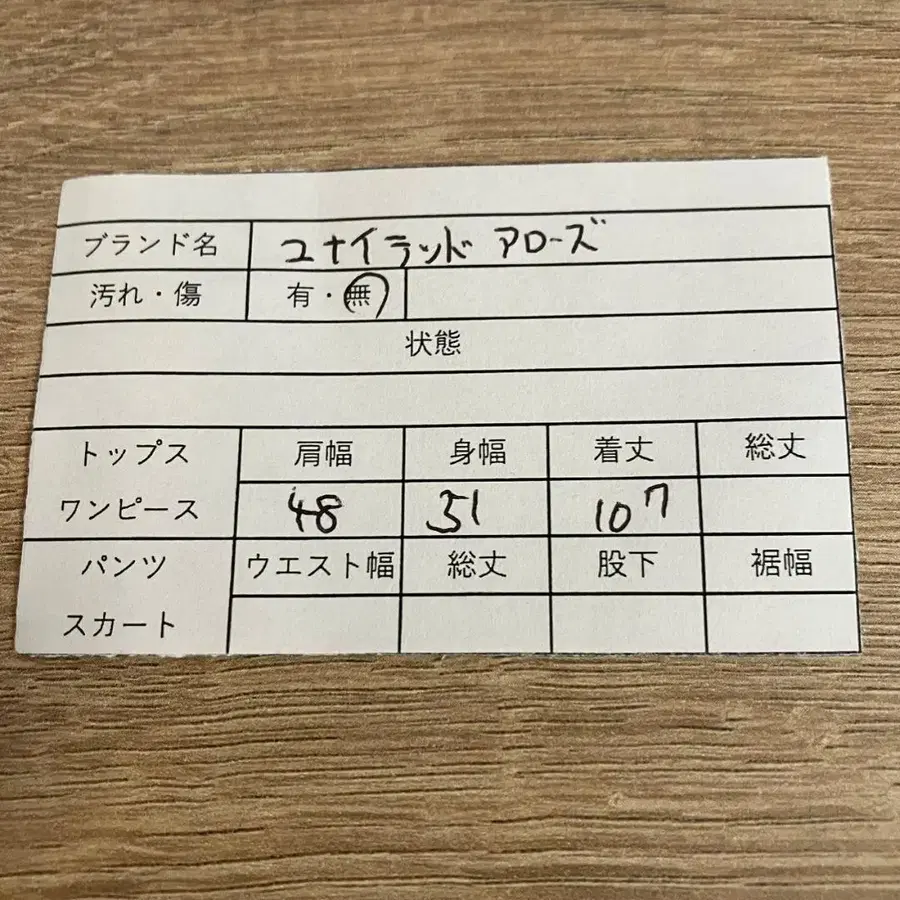 ブランド名 ユナイテッド アローズ
汚れ・傷 有・無
状態
トップス 肩幅 身幅 着丈 総丈
ワンピース 48 51 107
パンツ ウエスト幅 総丈 股下 裾幅
スカート